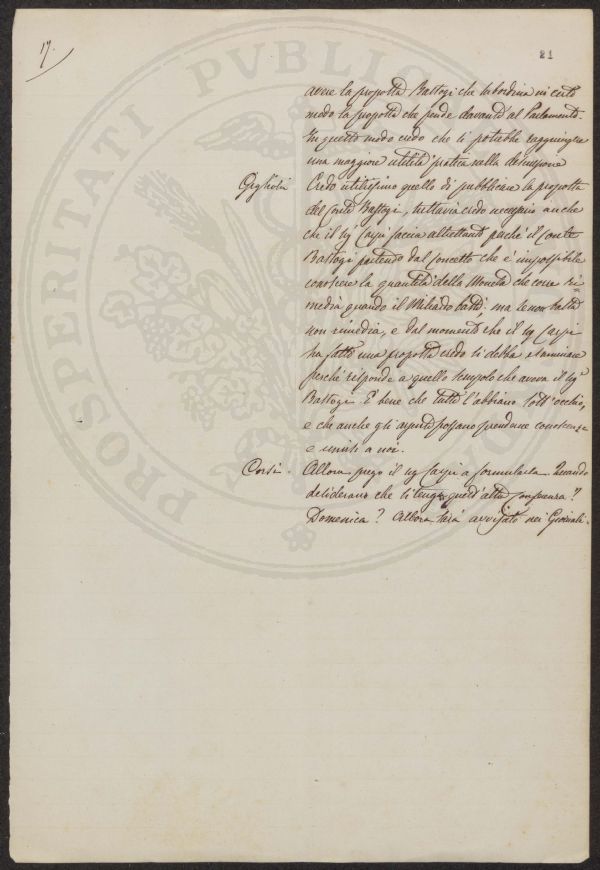 17.
21
avere la proposta Bastogi che subordina in certo
modo la proposta che pende davanti al Parlamento.
In questo modo credo che si potrebbe raggiungere
una maggiore utilità pratica nella discussione
Giglioli Credo utilissimo quello di pubblicare la proposta
del Conte Bastogi, tuttavia credo necessario anche
che il Sig Carpi faccia altrettanto perché il Conte
Bastogi partendo dal concetto che è impossibile
conoscere la quantità della Moneta che corre ri=
media quando il Miliardo basti; ma se non basta
non rimedia, e dal momento che il Sig Carpi
ha fatto una proposta credo si debba esaminare
perché risponde a quello scrupolo che aveva il Sigr
Bastogi. È bene che tutti l'abbiano sott'occhio,
e che anche gli assenti possano prendere conoscenza
e unirsi a noi.
Corsi. Allora prego il Sig Carpi a formularla. Quando
desiderano che si tenga quest'altra conferenza?
Domenica? Allora sarà avvisato nei Giornali.
PROSPERITATI PUBLICAE